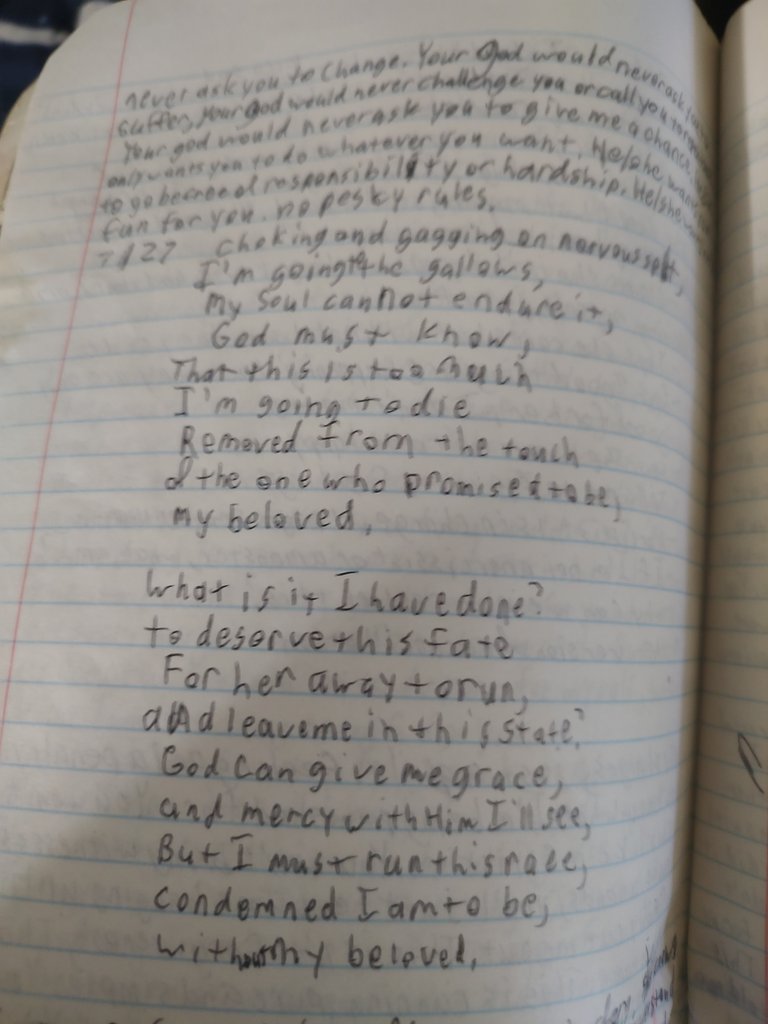 never ask you to change. Your God would never ask
suffer, your god would never challenge you or call you to
Your god would never ask you to give me a chance.
only wants you to do whatever you want. He/she
to go be free of responsibility or hardship. He/she
fun for you. no pesky rules.
7/27 Choking and gagging on norvous spit,
I'm going to the gallows,
My soul cannot endure it,
God must know,
That this is too much
I'm going to die
Removed from the touch
of the one who promised to be,
my beloved,
What is it I have done?
to deserve this fate
For her away to run,
and leave me in this state?
God can give me grace,
and mercy with Him I'll see,
But I must run this race,
condemned I am to be,
without my beloved,